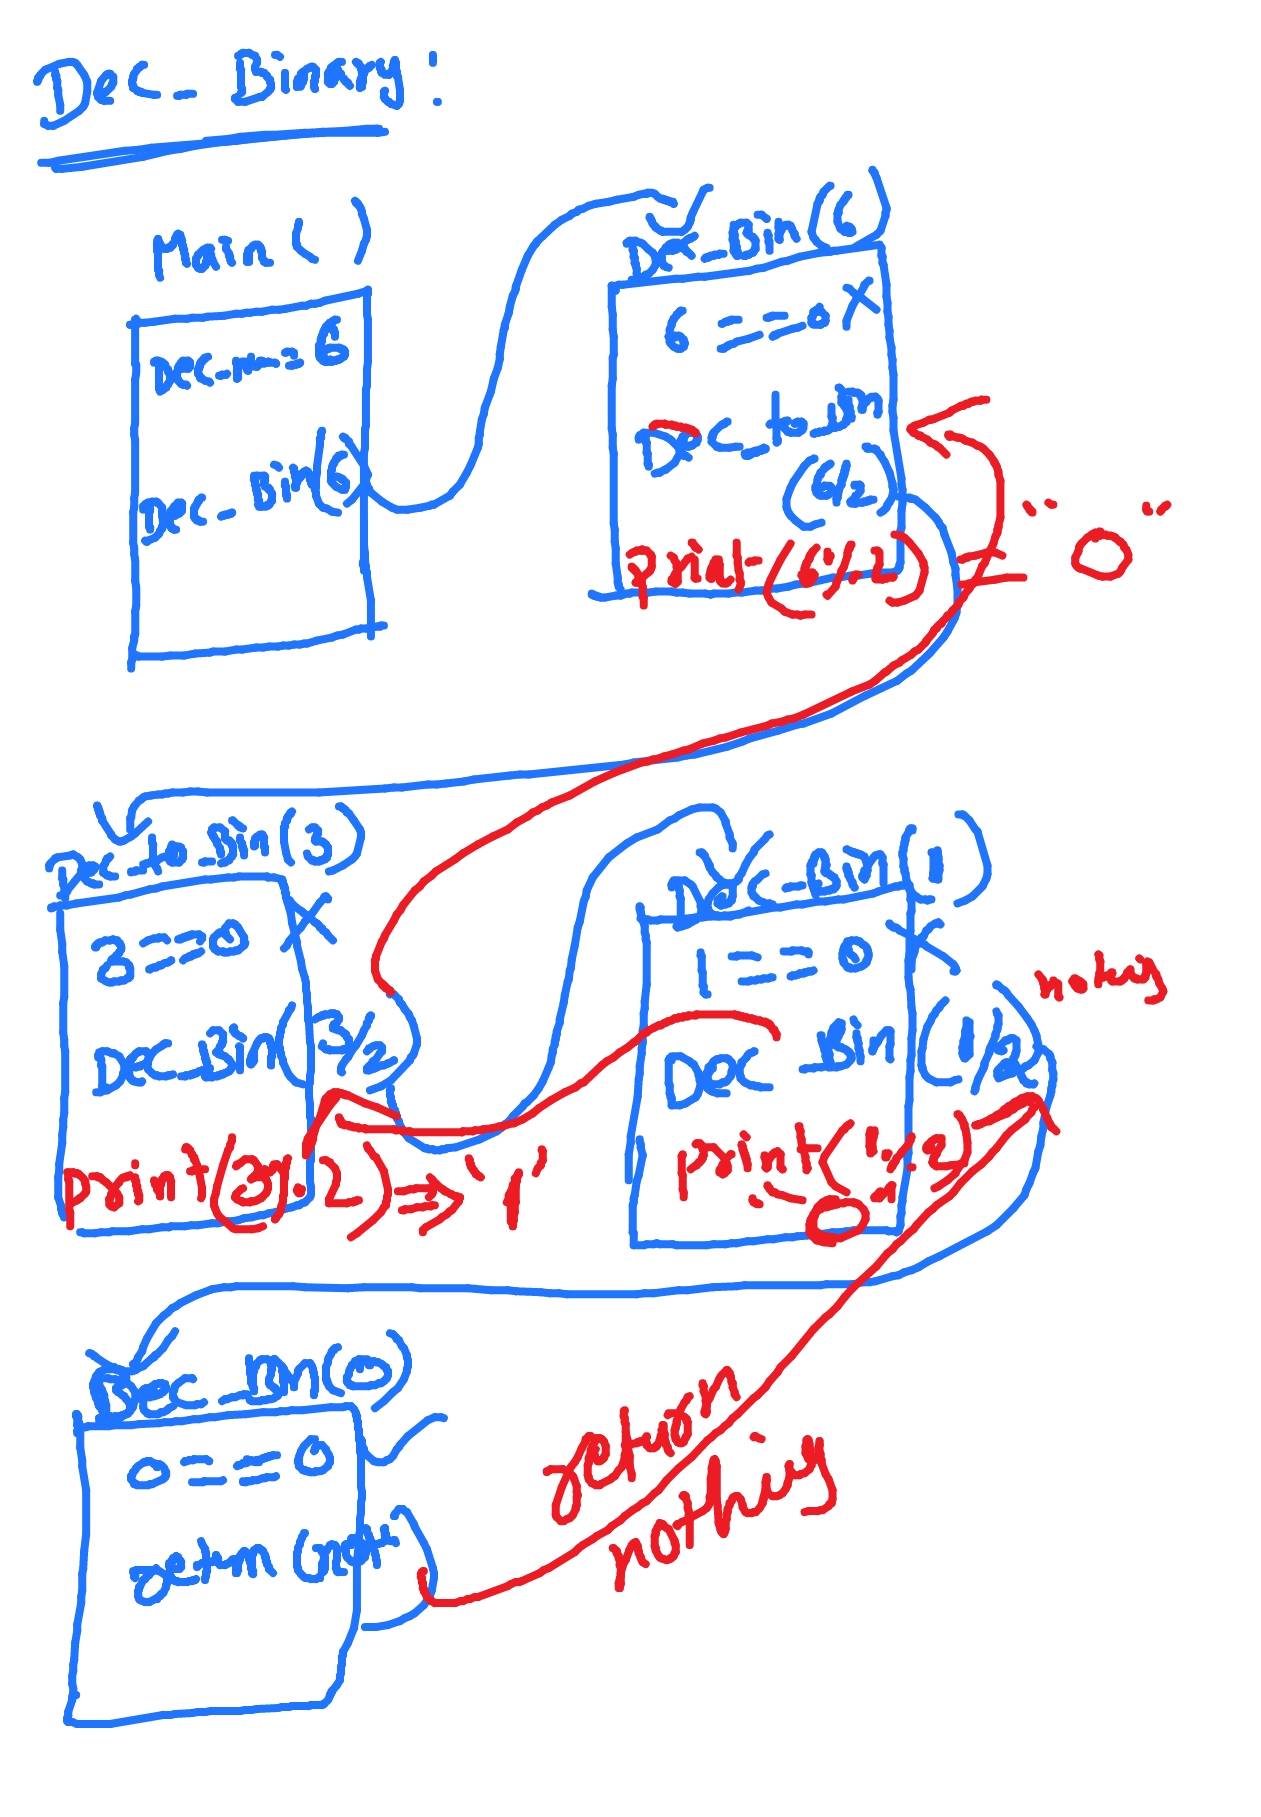 Dec_ Binary:
Main ( )
Dec_n = 6
Dec_ Bin(6)
Dec_Bin(6)
6 == 0 X
Dec_to_Bin
(6/2)
print (6%2) = "0"
Dec_to_Bin(3)
3 == 0 X
Dec_Bin(3/2)
print(3%2) => '1'
Dec_Bin(1)
1 == 0 X
Dec_Bin(1/2)
print(1%2)
"0"
Dec_Bin(0)
0 == 0 ✓
return (not)
return
nothing